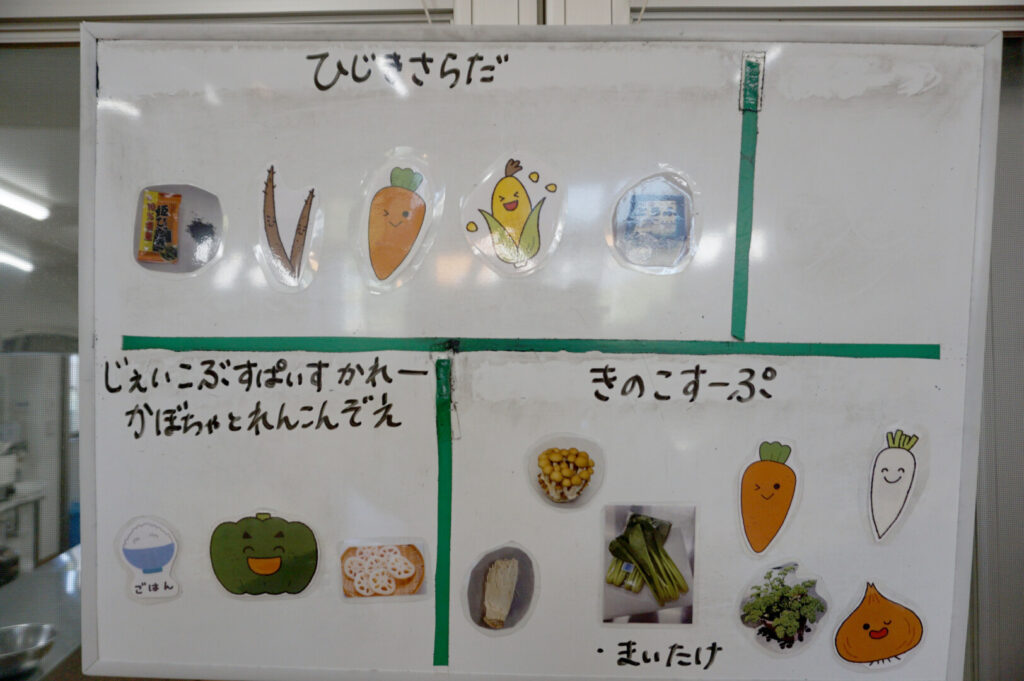 ひじきさらだ
じぇいこぶすぱいすかれー
かぼちゃとれんこんぞえ
きのこすーぷ
ごはん
・まいたけ